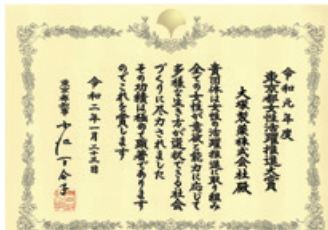 令和元年度
東京都女性活躍推進大賞
大塚製薬株式会社殿
貴団体は女性の活躍推進に取り組み
全ての女性が意欲と能力に応じて
多様な生き方が選択できる社会
づくりに尽力されました
その功績は極めて顕著であります
のでこれを賞します
令和二年一月二十三日
東京都知事 小池百合子